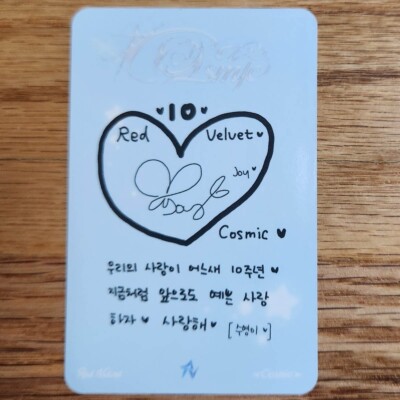 ♥10♥
Red Velvet♥
Joy♥
Cosmic ♥
우리의 사랑이 어느새 10주년 ♥
지금처럼 앞으로도 예쁜 사랑
하자 ♥ 사랑해 ♥ [수영이♥]
Red Velvet
Cosmic